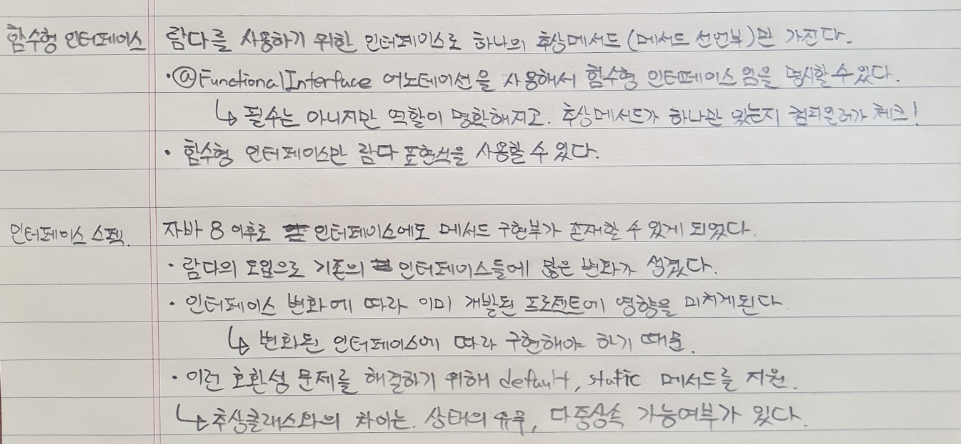 함수형 인터페이스 람다를 사용하기 위한 인터페이스로 하나의 추상메서드 (메서드 선언부)만 가진다.
·@FunctionalInterface 어노테이션을 사용해서 함수형 인터페이스 임을 명시할 수 있다.
↳ 필수는 아니지만 역할이 명확해지고. 추상메서드가 하나만 있는지 컴파일러가 체크!
· 함수형 인터페이스만 람다 표현식을 사용할 수 있다.
인터페이스 스펙. 자바 8 이후로 인터페이스에도 메서드 구현부가 존재할 수 있게 되었다.
· 람다의 도입으로 기존의 인터페이스들에 많은 변화가 생겼다.
· 인터페이스 변화에 따라 이미 개발된 프로젝트에 영향을 미치게된다
↳ 변화된 인터페이스에 따라 구현해야 하기 때문.
· 이런 호환성 문제를 해결하기 위해 default, static 메서드를 지원.
↳ 추상클래스와의 차이는. 상태의 유무, 다중상속 가능여부가 있다.